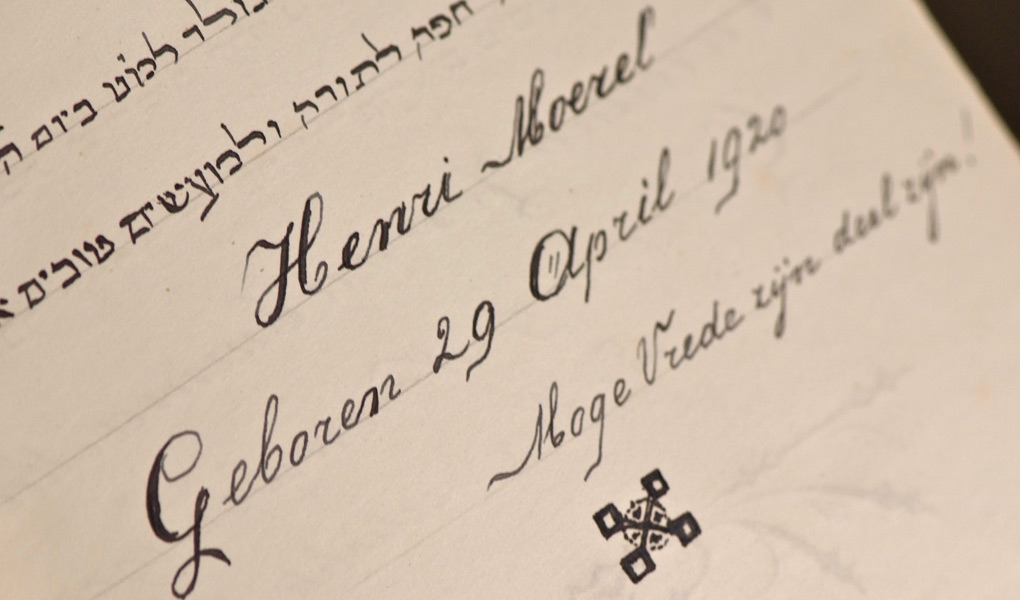 נולד למ׳ט ביום
חפה לתורה ולמעשים טובים
Henri Moerel
Geboren 29 April 1920
Moge Vrede zijn deel zijn!